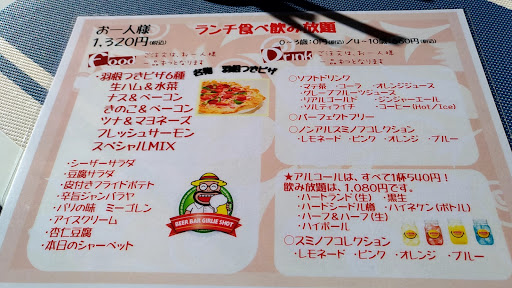 お一人様
1,320円(税込)
ランチ食べ飲み放題
0~3歳:0円(税込)/4~10歳:
Food
ご注文は、お一人様
一品ずつとなります
Drink
ご注文は、お一人様
一品ずつとなります
・羽根つきピザ6種
生ハム&水菜
ナス&ベーコン
きのこ&ベーコン
ツナ&マヨネーズ
フレッシュサーモン
スペシャルMIX
名物 羽根つきピザ
・シーザーサラダ
・豆腐サラダ
・皮付きフライドポテト
・辛旨ジャンバラヤ
・バリの味 ミーゴレン
・アイスクリーム
・杏仁豆腐
・本日のシャーベット
BEER BAR GIRLIE SHOT
○ソフトドリンク
・マテ茶 ・コーラ ・オレンジジュース
・グレープフルーツジュース
・リアルゴールド ・ジンジャーエール
・ソルティライチ ・コーヒー(Hot/Ice)
○パーフェクトフリー
○ノンアルスミノフコレクション
・レモネード ・ピンク ・オレンジ ・ブルー
★アルコールは、すべて1杯540円!
飲み放題は、1,080円です。
・ハートランド(生) ・黒生
・ハードシードル樽 ・ハイネケン(ボトル)
・ハーフ&ハーフ(生)
・ハイボール
○スミノフコレクション
・レモネード ・ピンク ・オレンジ ・ブルー